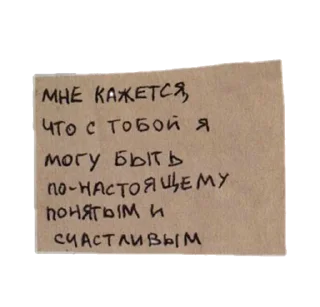 МНЕ КАЖЕТСЯ,
ЧТО С ТОБОЙ Я
МОГУ БЫТЬ
ПО-НАСТОЯЩЕМУ
ПОНЯТЫМ И
СЧАСТЛИВЫМ